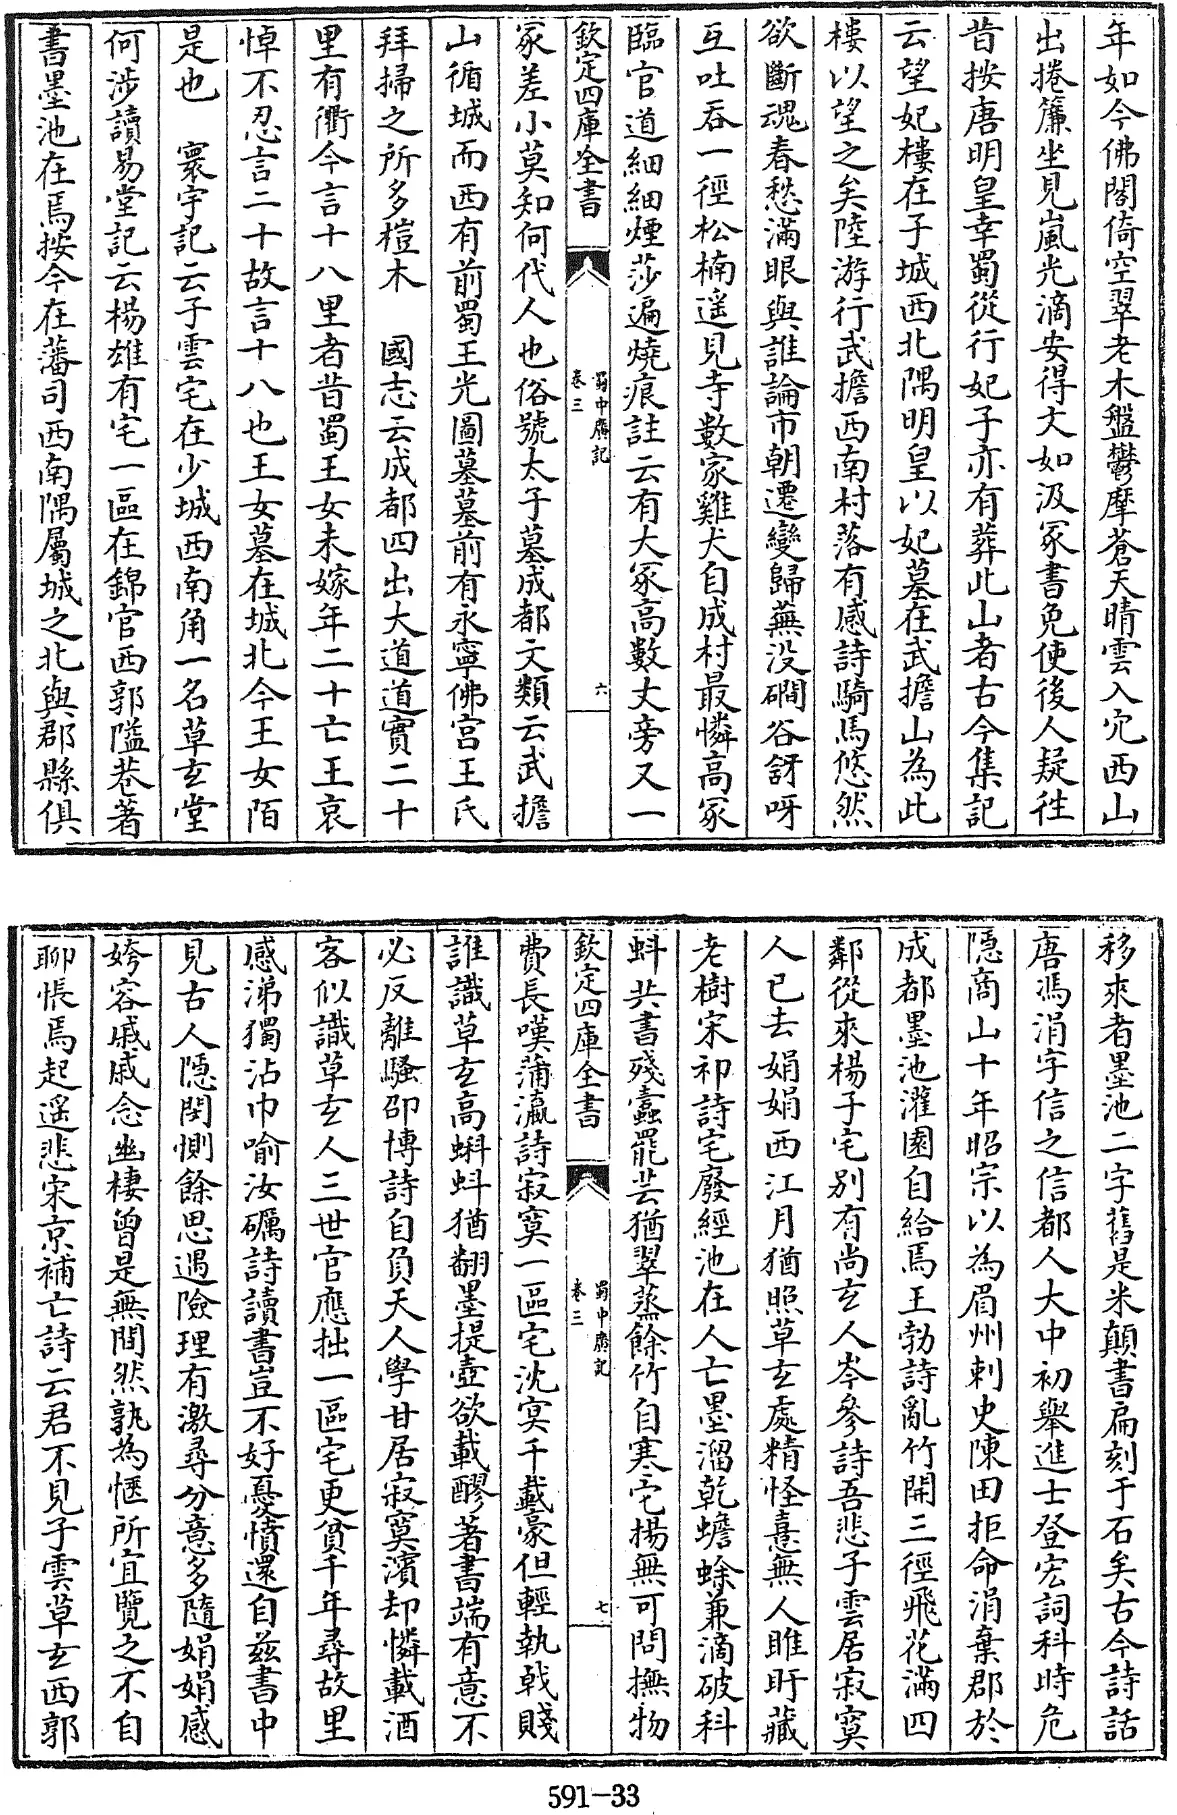 年如今佛閣倚空翠老木盤鬱摩蒼天晴雲入宂西山
出捲簾坐見嵐光滴安得大如汲冢書免使後人疑往
昔按唐明皇幸蜀從行妃子亦有葬此山者古今集記
云望妃樓在子城西北隅明皇以妃墓在武擔山為此
樓以望之矣陸游行武擔西南村落有感詩騎馬悠然
欲斷魂春愁滿眼與誰論市朝遷變歸蕪没磵谷谽呀
互吐吞一徑松楠遥見寺數家雞犬自成村最憐高冢
臨官道細細煙莎遍燒痕註云有大冢高數丈旁又一
欽定四庫全書
蜀中廣記
卷三
六
冢差小莫知何代人也俗號太子墓成都文類云武擔
山循城而西有前蜀王光圖墓墓前有永寧佛宫王氏
拜掃之所多榿木　國志云成都四出大道道實二十
里有衢今言十八里者昔蜀王女未嫁年二十亡王哀
悼不忍言二十故言十八也王女墓在城北今王女陌
是也　寰宇記云子雲宅在少城西南角一名草玄堂
何涉讀易堂記云楊雄有宅一區在錦官西郭隘巷著
書墨池在焉按今在藩司西南隅屬城之北與郡縣俱
移來者墨池二字舊是米顛書扁刻于石矣古今詩話
唐馮涓字信之信都人大中初舉進士登宏詞科時危
隱商山十年昭宗以為眉州刺史陳田拒命涓棄郡於
成都墨池灌園自給焉王勃詩亂竹開三徑飛花滿四
鄰從來楊子宅别有尚玄人岑參詩吾悲子雲居寂寞
人已去娟娟西江月猶照草玄處精怪憙無人睢盱藏
老樹宋祁詩宅廢經池在人亡墨溜乾蟾蜍兼滴破科
蚪共書殘蠹罷芸猶翠蒸餘竹自寒宅揚無可問撫物
欽定四庫全書
蜀中廣記
卷三
七
費長嘆蒲瀛詩寂寞一區宅沈冥千載豪但輕執戟賤
誰識草玄高蝌蚪猶翻墨提壺欲載醪著書端有意不
必反離騷邵博詩自負天人學甘居寂寞濱却憐載酒
客似識草玄人三世官應拙一區宅更貧千年尋故里
感涕獨沾巾喻汝礪詩讀書豈不好憂憤還自兹書中
見古人隱閔惻餘思遇險理有激尋分意多隨娟娟感
姱容戚戚念幽棲曾是無間然孰為愜所宜覽之不自
聊悵焉起遥悲宋京補亡詩云君不見子雲草玄西郭
591-33